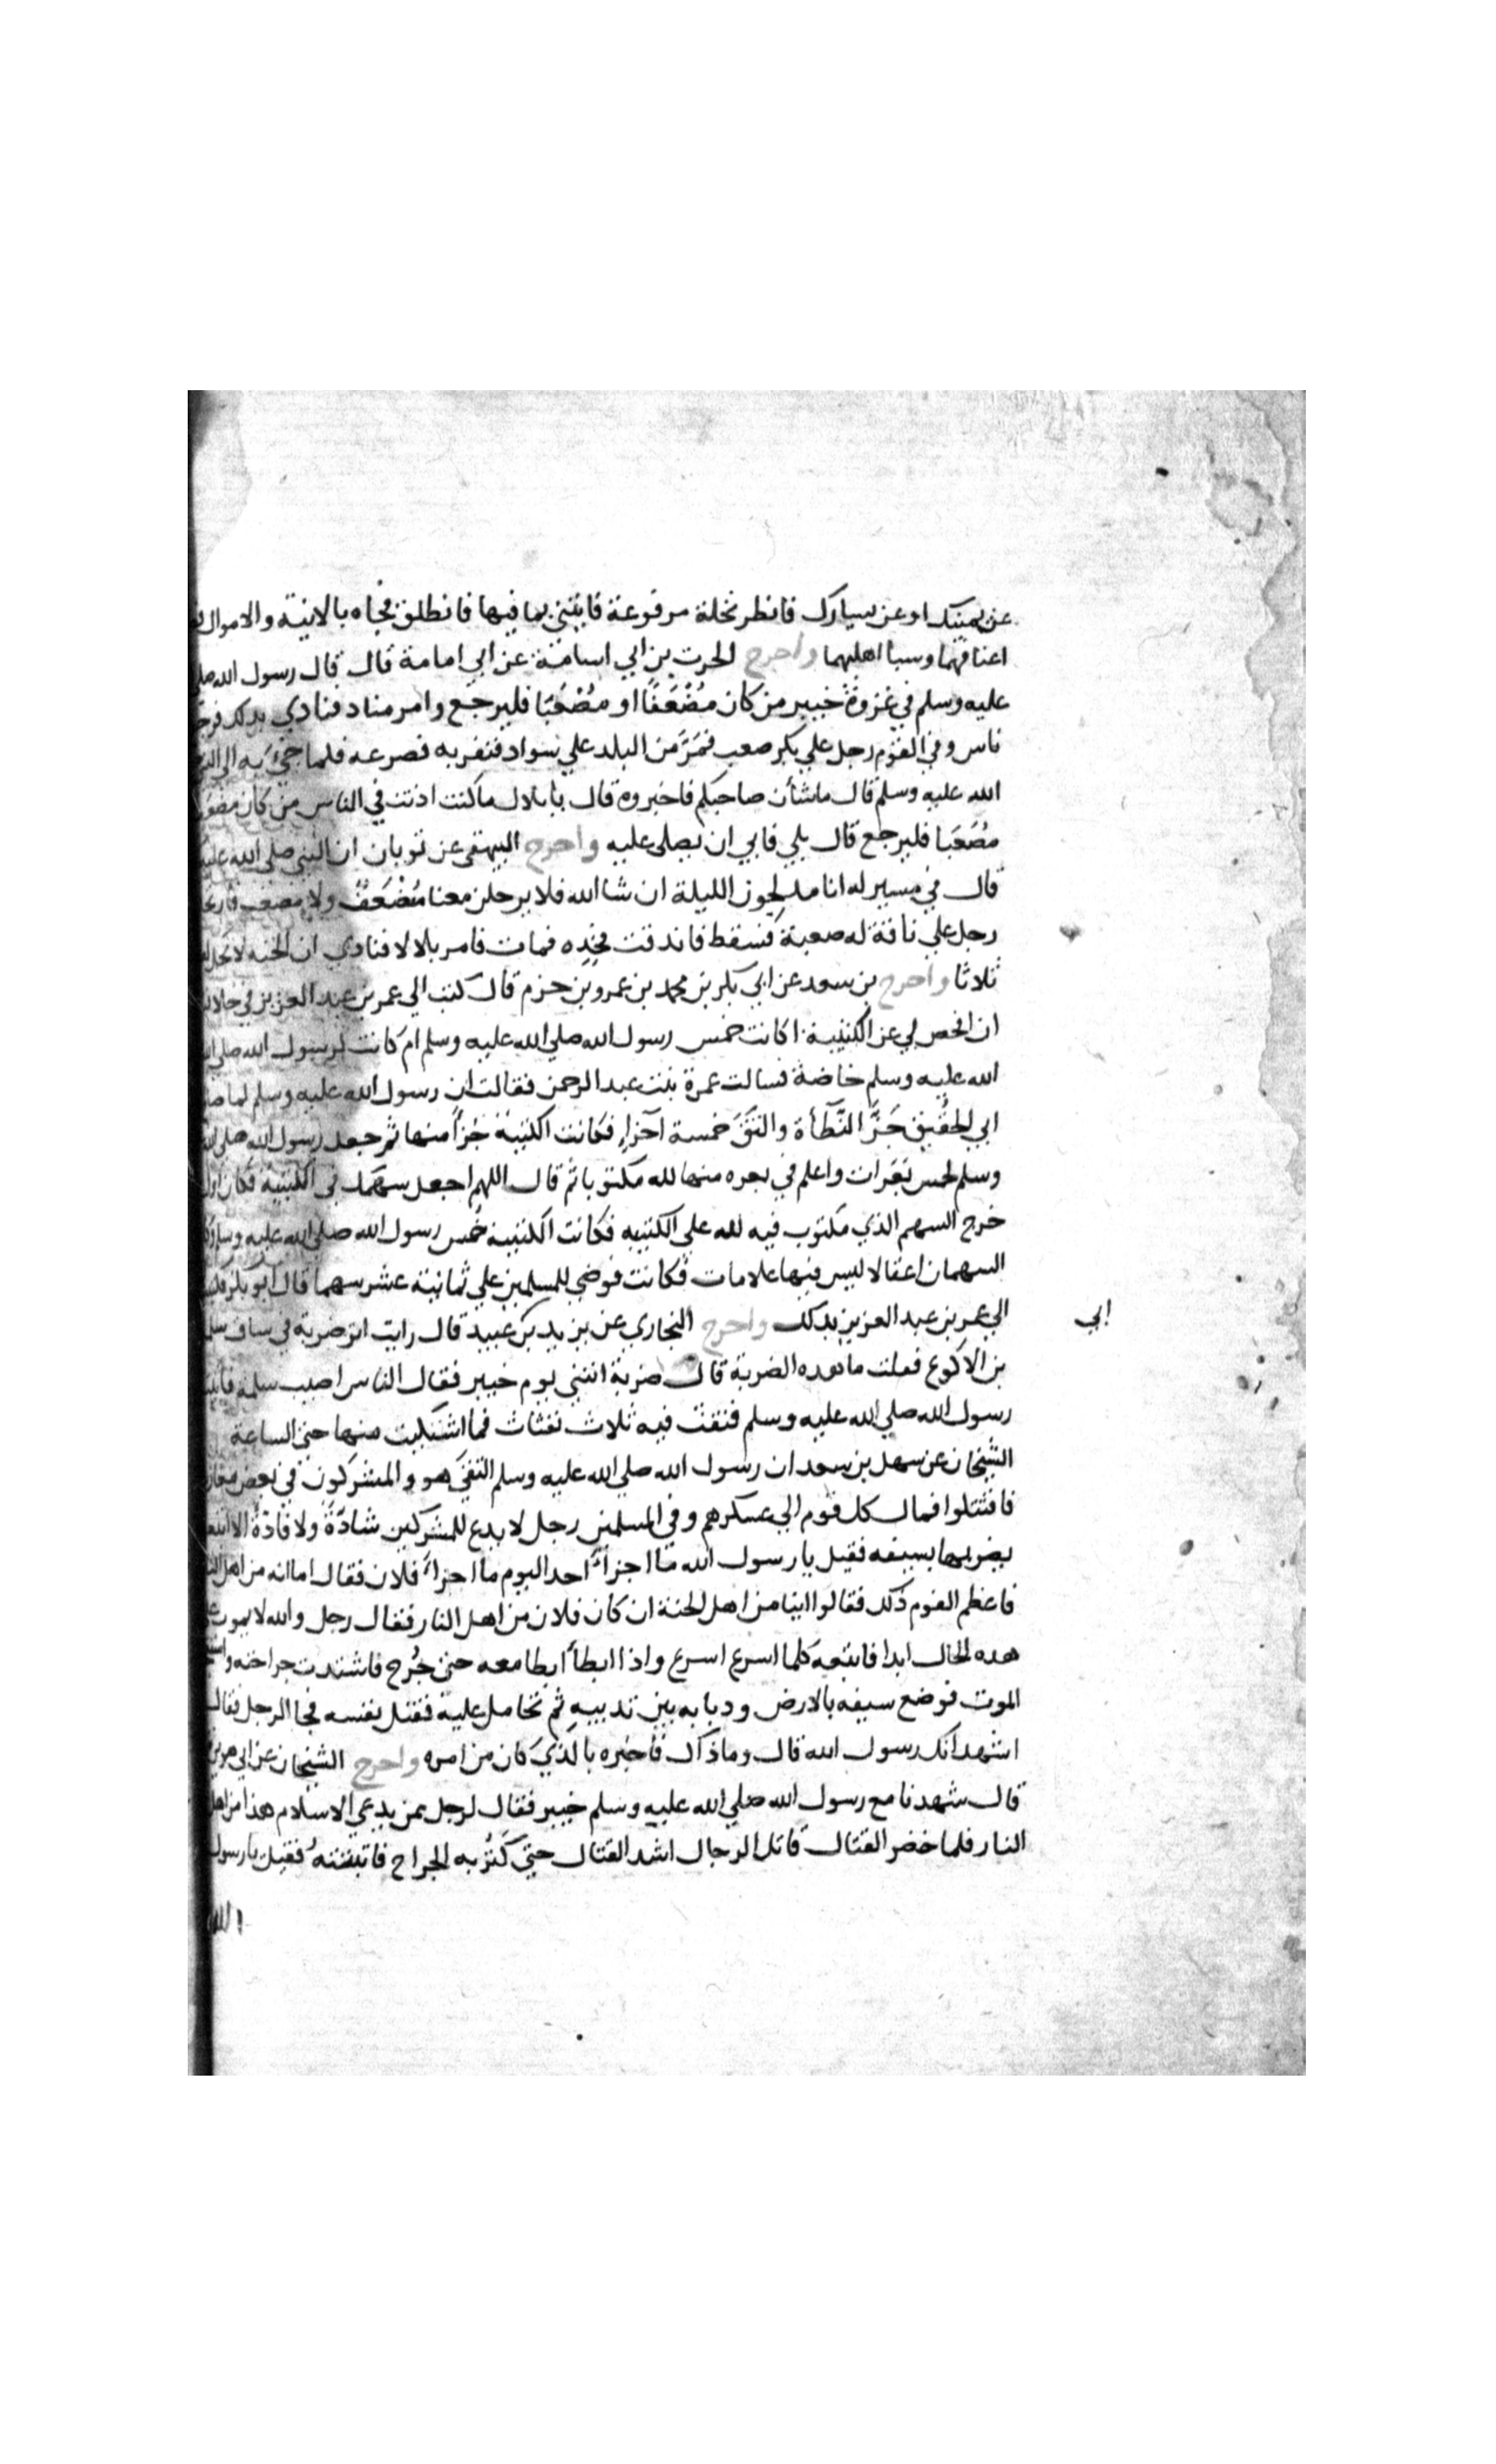 عن يمينك او عن يسارك فانظر نخلة مرفوعة فايتني بما فيها فانطلق فجاه بالانية والاموال
اعناقهما وسبا اهليهما واخرج الحرت بن ابي اسامة عن ابي امامة قال قال رسول الله صلى
عليه وسلم في غزوة خيبر من كان مُضْعَفًا او مُصْعَبًا فليرجع وامر مناد فنادي بدلك فرجع
ناس وفي القوم رجل علي بكر صعب فمرّ من البلد علي سواد فنفر به فصرعه فلما جيء به الى
الله عليه وسلم قال ماشأن صاحبكم فاخبروه قال يا بلال ماكنت اذنت في الناس من كان
مُصْعَبا فليرجع قال بلي فابي ان يصلى عليه واخرج البيهقى عن ثوبان ان النبي صلى الله عليه
قال في مسير له انا مدلجون الليلة ان شا الله فلا يرحلن معنا مُضْعَفٌ ولا مصعب فارتحل
رجل علي ناقة له صعبة فسقط فاندقت فخده فمات فامر بلالا فنادي ان الجنه لا تحل
ثلاثا واخرج بن سعد عن ابي بكر بن محمد بن عمرو بن حزم قال كتب الي عمر بن عبد العزيز في
ان افحص لي عن الكتيبة اكانت خمس رسول الله صلي الله عليه وسلم ام كانت لرسول الله صلى
الله عليه وسلم خاصة فسالت عمرة بنت عبد الرحمن فقالت ان رسول الله عليه وسلم لما
ابي الحُقَيق جَزَّ النَّطأة والشق خمسة اجزاء فكانت الكتيبة جُزأ منها ثم جعل رسول الله صلى
وسلم خمس بَعَرات واعلم في بعره منها لله مكتوبا ثم قال اللهم اجعل سهمك في الكتيبة فكان اول
خرج السهم الذي مكتوب فيه لله علي الكتيبه فكانت الكتيبة خُمس رسول الله صلى الله عليه وسلم
السهمان اغفالا ليس فيها علامات فكانت فوضي للمسلمين علي ثمانية عشر سهما قال ابو بكر
الي عمر بن عبد العزيز بدلك واخرج البخاري عن يزيد بن عبيد قال رايت اثر ضربة في ساق
ابي
بن الاكوع فعلت ما هده الضربة قال ضربة انتني يوم خيبر فقال الناس اصيب سلمة
رسول الله صلي الله عليه وسلم فنفث فيه ثلاث نفثات فما اشتكيت منها حتى الساعة
الشيخان عن سهل بن سعد ان رسول الله صلي الله عليه وسلم التقى هو والمشركون في بعض
فاقتتلوا فمال كل قوم الي عسكرهم وفي المسلمين رجل لا يدع للمشركين شادّةً ولا فادّةً الا
يضربها بسيفه فقيل يا رسول الله ما اجزأ احد اليوم ما اجزأ فلان فقال اما انه من اهل
فاعظم القوم ذلك فقالوا اينا من اهل الجنة ان كان فلان من اهل النار فقال رجل والله لا يموت
هده الحال ابدا فاتبعه كلما اسرع اسرع واذا ابطأ ابطا معه حتى جُرح فاشتدت جراحته
الموت فوضع سيفه بالارض ودبابه بين تدييه ثم تحامل عليه فقتل نفسه فجا الرجل فقال
اشهد انك رسول الله قال وما ذاك فاخبره بالذي كان من امره واخرج الشيخان عن ابي
قال شهدنا مع رسول الله صلي الله عليه وسلم خيبر فقال لرجل ممن يدعي الاسلام هذا من اهل
النار فلما حضر القتال قاتل الرجال اشد القتال حتي كثر به الجراح فاتبته فقيل يا رسول
الله